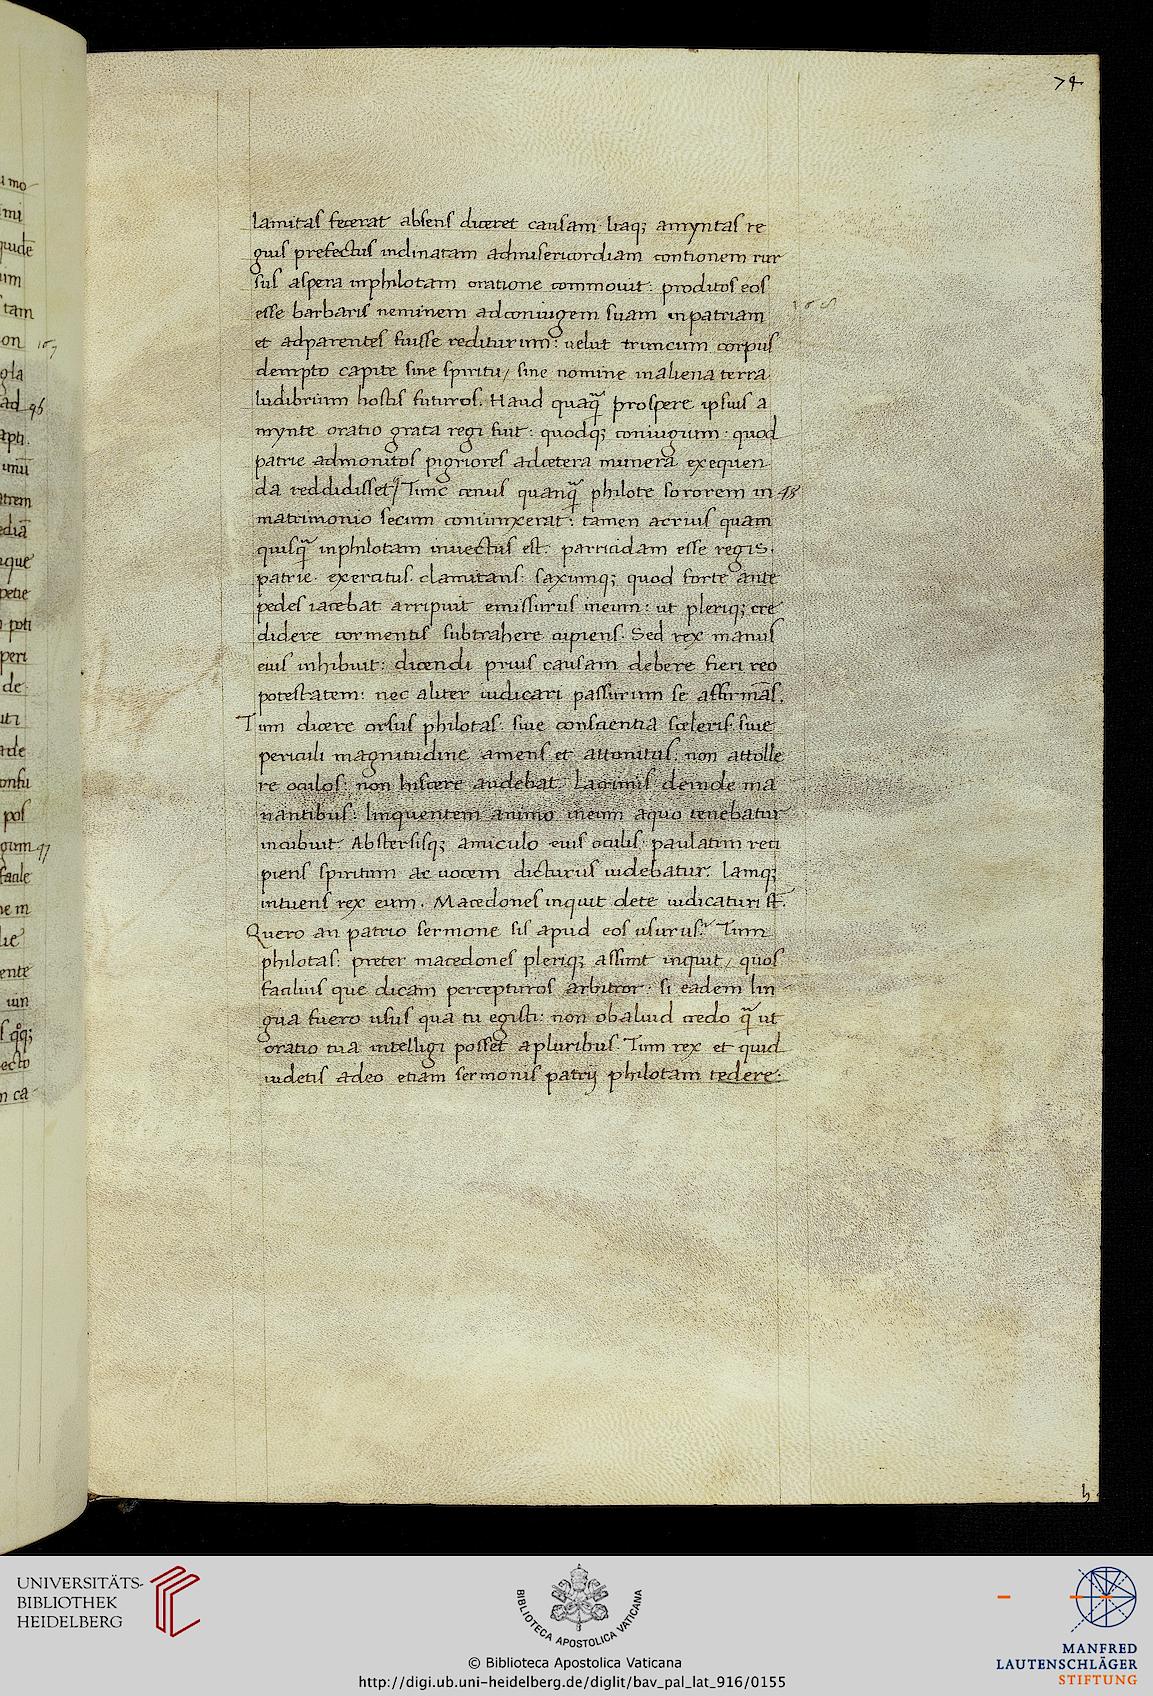 74
lamitas fecerat absens diceret causam. Itaq; amyntas re
gius prefectus inclinatam admisericordiam contionem rur
sus aspera inphilotam oratione commouit: proditos eos
esse barbaris neminem adconiugem suam inpatriam
et adparentes fuisse rediturum: uelut truncum corpus
dempto capite sine spiritu/ sine nomine inaliena terra
ludibrium hostis futuros. Haud quaq̃ prospere ipsius a
mynte oratio grata regi fuit: quodq; coniugum: quod
patrie admonitos pigriores adcetera munera exequen
da reddidisset. Tunc cenus quanq̃ philote sororem in 48
matrimonio secum coniunxerat: tamen acrius quam
quisq̃ inphilotam inuectus est. parricidam esse regis.
patrie. exercitus. clamitans: saxumq; quod forte ante
pedes iacebat arripuit emissurus ineum: ut pleriq; cre
didere tormentis subtrahere cupiens. Sed rex manus
eius inhibuit: dicendi prius causam debere fieri reo
potestatem: nec aliter iudicari passurum se affirmãs.
Tum dicere orsus philotas. siue conscientia sceleris. siue
periculi magnitudine amens et attonitus: non attolle
re oculos: non hiscere audebat. Lacrimis deinde ma
nantibus: linquentem animo ineum aquo tenebatur
incubuit. Abstersisq; amiculo eius oculis: paulatim reci
piens spiritum ac uocem dicturus uidebatur. Iamq;
intuens rex eum. Macedones inquit dete iudicaturi st̃.
Quero an patrio sermone sis apud eos usurus? Tum
philotas: preter macedones pleriq; assunt inquit/ quos
facilius que dicam percepturos arbitror: si eadem lin
gua fuero usus qua tu egisti: non obaliud credo q̃ ut
oratio tua intelligi posset apluribus. Tum rex et quid
uidetis adeo etiam sermonis patrij philotam tedere:
h
UNIVERSITÄTS-
BIBLIOTHEK
HEIDELBERG
BIBLIOTECA APOSTOLICA VATICANA
MANFRED
LAUTENSCHLÄGER
STIFTUNG
© Biblioteca Apostolica Vaticana
http://digi.ub.uni-heidelberg.de/diglit/bav_pal_lat_916/0155